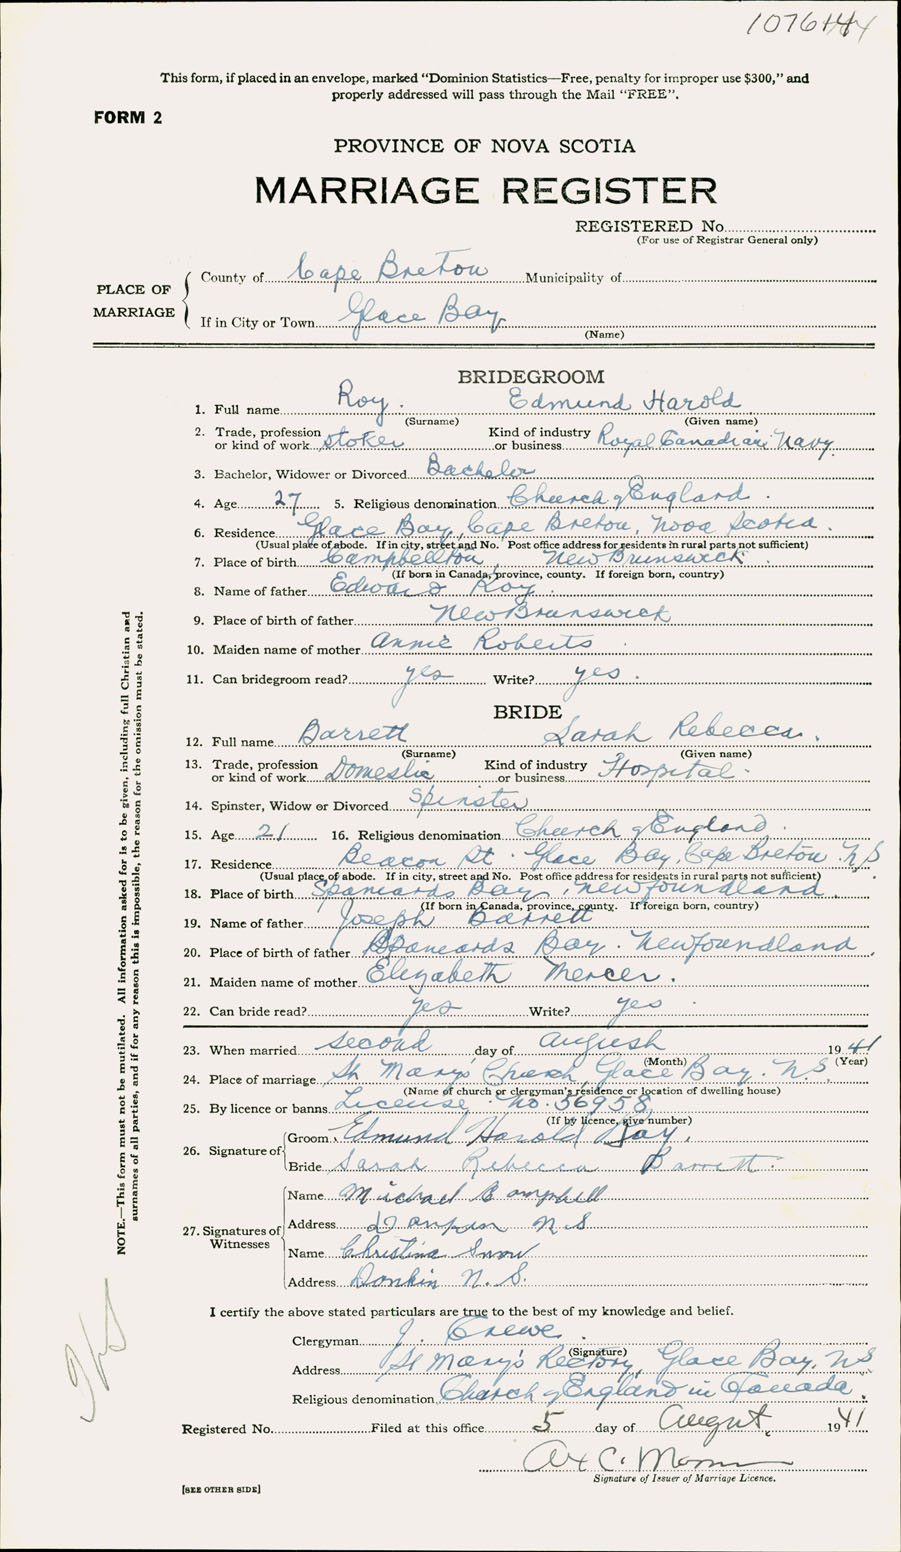 This form, if placed in an envelope, marked “Dominion Statistics—Free, penalty for improper use $300,” and
properly addressed will pass through the Mail “FREE”.
FORM 2
PROVINCE OF NOVA SCOTIA
MARRIAGE REGISTER
REGISTERED No.
(For use of Registrar General only)
PLACE OF MARRIAGE
County of Cape Breton Municipality of
If in City or Town Glace Bay
(Name)
BRIDEGROOM
1. Full name Roy. Edmund Harold
(Surname) (Given name)
2. Trade, profession or kind of work Stoker Kind of industry or business Royal Canadian Navy
3. Bachelor, Widower or Divorced Bachelor
4. Age 27 5. Religious denomination Church of England.
6. Residence Glace Bay, Cape Breton, Nova Scotia.
(Usual place of abode. If in city, street and No. Post office address for residents in rural parts not sufficient)
7. Place of birth Campbellton, New Brunswick
(If born in Canada, province, county. If foreign born, country)
8. Name of father Edward Roy.
9. Place of birth of father New Brunswick
10. Maiden name of mother Annie Roberts
11. Can bridegroom read? yes Write? yes.
BRIDE
12. Full name Barrett Sarah Rebecca.
(Surname) (Given name)
13. Trade, profession or kind of work Domestic Kind of industry or business Hospital.
14. Spinster, Widow or Divorced Spinster
15. Age 21 16. Religious denomination Church of England.
17. Residence Beacon St. Glace Bay, Cape Breton N.S
(Usual place of abode. If in city, street and No. Post office address for residents in rural parts not sufficient)
18. Place of birth Spaniards Bay, Newfoundland.
(If born in Canada, province, county. If foreign born, country)
19. Name of father Joseph Barrett
20. Place of birth of father Spaniards Bay. Newfoundland.
21. Maiden name of mother Elizabeth Mercer.
22. Can bride read? yes Write? yes.
23. When married second day of August 1941
(Month) (Year)
24. Place of marriage St Mary's Church, Glace Bay. N.S.
(Name of church or clergyman's residence or location of dwelling house)
25. By licence or banns License No. 56958
(If by licence, give number)
26. Signature of
Groom Edmund Harold Roy.
Bride Sarah Rebecca Barrett.
27. Signatures of Witnesses
Name Michael Campbell
Address Donkin N.S
Name Christina Snow
Address Donkin N.S.
I certify the above stated particulars are true to the best of my knowledge and belief.
Clergyman J. Crewe.
(Signature)
Address St Mary's Rectory, Glace Bay, NS
Religious denomination Church of England in Canada.
Registered No. Filed at this office 5 day of August, 1941
Signature of Issuer of Marriage Licence.
[SEE OTHER SIDE]
NOTE.—This form must not be mutilated. All information asked for is to be given, including full Christian and
surnames of all parties, and if for any reason this is impossible, the reason for the omission must be stated.